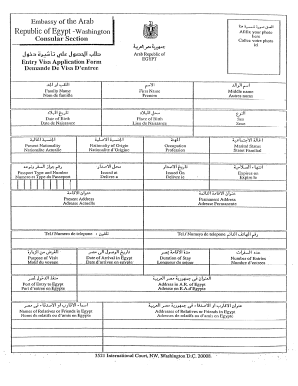 Embassy of the Arab
Republic of Egypt - Washington
Consular Section
طلب الحصول على تأشيرة دخول
Entry Visa Application Form
Demande De Visa D'entree
جمهورية مصر العربية
Arab Republic of
EGYPT
Affix your photo
here
Collez votre photo
ici
Family Name
Nom de famille
الاسم
First Name
Prenom
اسم الوالد
Middle name
Autres noms
تاريخ الميلاد
Date of Birth
Date de Naissance
محل الميلاد
Place of Birth
Lieu de Naissance
النوع
Sex
Sexe
الجنسية الحالية
Present Nationality
Nationalite Actuelle
الجنسية الاصلية
Nationality of Origin
Nationalite d'Origine
المهنة
Occupation
Profession
الحالة الاجتماعية
Marital Status
Statut Familial
رقم جواز السفر ونوعه
Passport Type and Number
Numero et Type de Passeport
محل الاصدار
Issued at
Delivre a
تاريخ الاصدار
Issued On
Delivre le
انتهاء الصلاحية
Expires on
Expire le
عنوان الاقامة
Present Address
Adresse Actuelle
عنوان الاقامة الدائمة
Permanent Address
Adresse Permanente
Tel / Numero de telephone
Tel / Numero de telephone
الغرض من الزيارة
Purpose of Visit
Motif du voyage
تاريخ الوصول الى مصر
Date of Arrival in Egypt
Date d'arrive en egypte
مدة الاقامة بمصر
Duration of Stay
Longueur de sejour
عدد السفرات
Number of Entries
Number d'entrees
منفذ الدخول لمصر
Port of Entry to Egypt
Port d'entree en Egypte
العنوان فى جمهورية مصر العربية
Address in A.R. of Egypt
Adresse en R.A d'Egypte
اسماء الاقارب او الاصدقاء فى مصر
Names of Relatives or Friends in Egypt
Noms de relatifs ou d'amis en Egypt
عنوان الاقارب او الاصدقاء فى جمهورية مصر العربية
Addresses of Relatives or Friends in Egypt
Adresses de relatifs ou d'amis en Egypt
3521 International Court, NW, Washington D.C. 20008